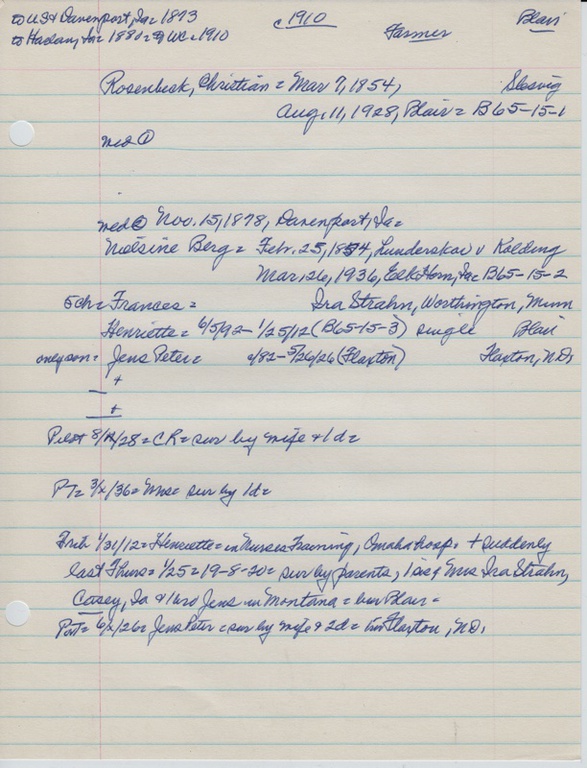 to USA Davenport, Ia = 1873 c 1910 Farmer Blair
to Harlan, Ia = 1880 = to WC c 1910
Rosenbeck, Christian = Mar 7, 1854, Slesvig
Aug. 11, 1928, Blair = B65-15-1
med ①
med ② Nov. 15, 1878, Davenport, Ia =
Nielsine Berg = Febr. 25, 1854, Lunderskov v Kolding
Mar. 26, 1936, Elk Horn, Ia B65-15-2
5 ch = Frances = Ira Strahn, Worthington, Minn
Henriette = 6/5/92 - 1/25/12 (B65-15-3) single Blair
only son = Jens Peter = /82 - 5/26/26 (Flaxton) Flaxton, ND,
+
+
Pilot 8/ /28 = CR = sur by wife + 1 d =
PT = 3/x/36 = Mrs = sur by 1 d =
Trib 1/31/12 = Henriette = in Nurses Training, Omaha Hosp. + suddenly
last Thurs = 1/25 = 19-8-20 = sur by parents, 1 sis Mrs Ira Strahn,
Casey, Ia + 1 bro Jens in Montana = bur Blair =
Pilot = 6/x/26 = Jens Peter = sur by wife + 2 d = bur Flaxton, ND,